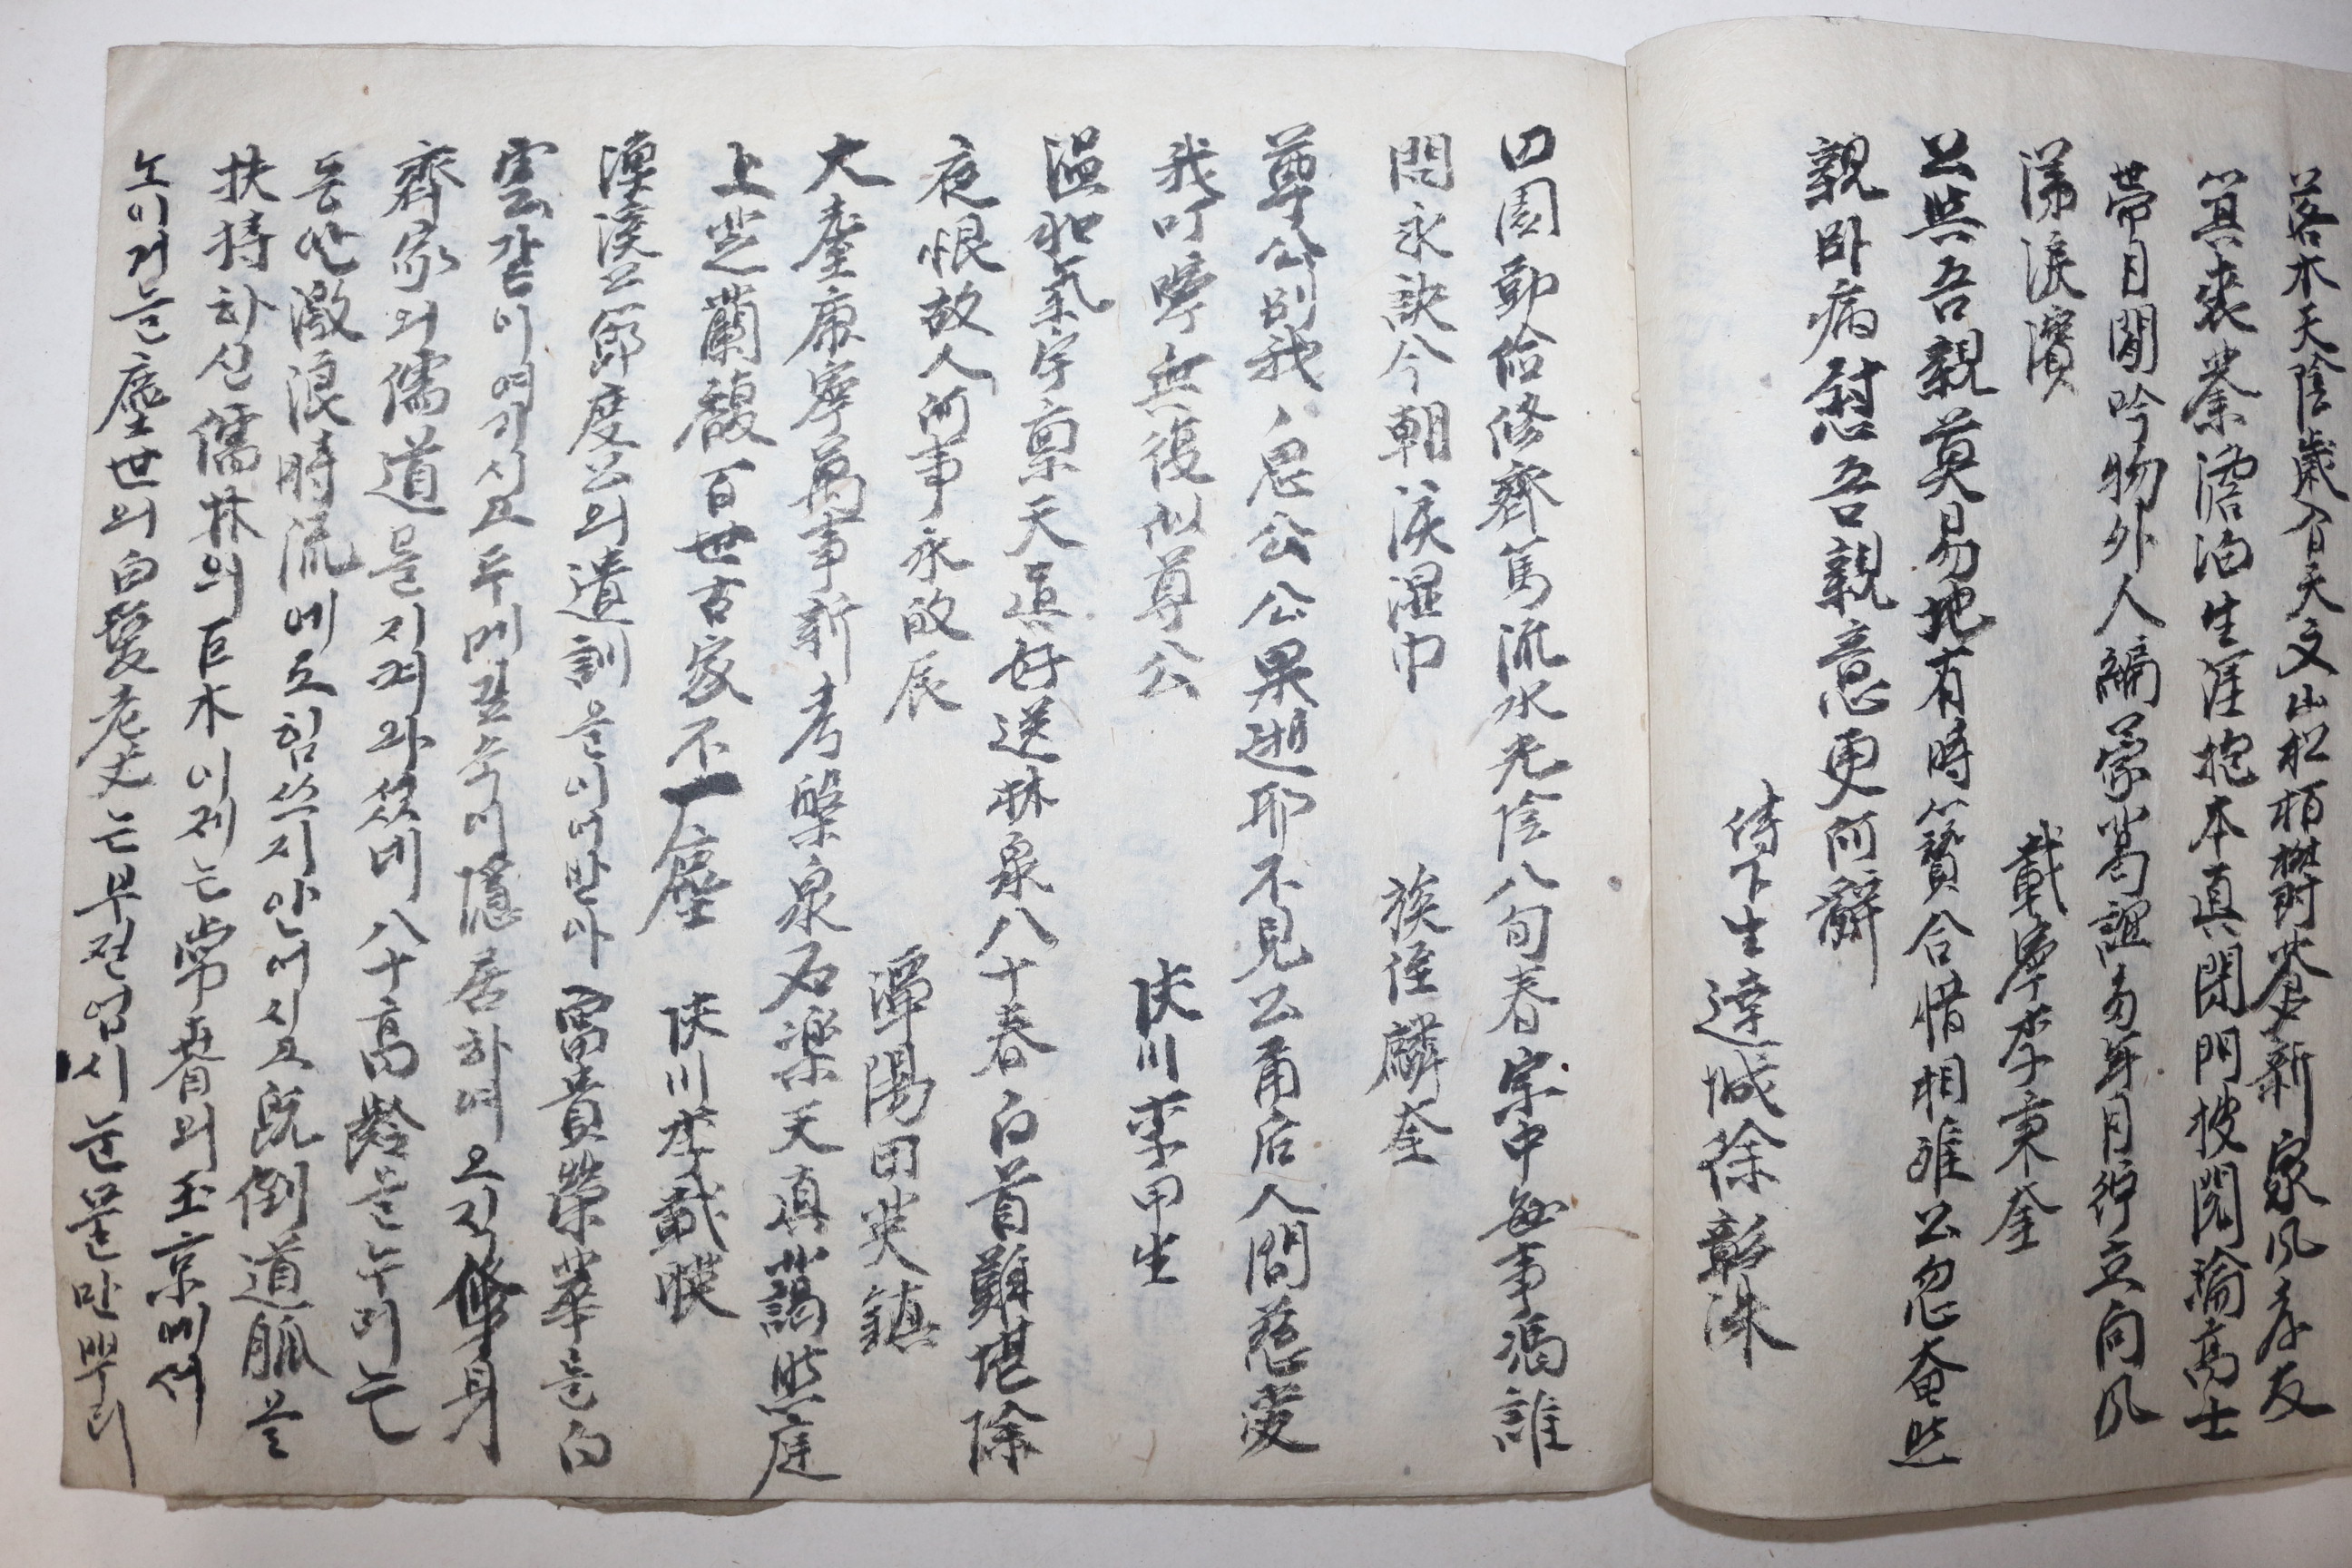 落木天陰歲入天文山松栢欝蒼新家風孝友
箕裘業澹泊生涯抱本眞閉門披閱窩高士
帶月閒吟物外人編蒙當誼多年月竚立向風
涕淚濱 載寧李秉奎
公與吾親莫易地有時簪合惜相離公忽奄然
親卧病慰吾親意更何辭
侍下生達城徐彰洙
田園勤儉修齊篤流水光陰八旬春宗中每事馮誰
問永訣今朝淚濕巾 族侄麟奎
尊公別我我思公公果逝耶不見公甬后人間慈愛
我叮嚀無復似尊公 陜川李甲生
溫和氣宇稟天眞好送林泉八十春白首難堪除
夜恨故人何事永啟辰 潭陽田英鎮
大耋康寧萬事新考槃泉石樂天眞藹然庭
上芝蘭馥百世古家不一塵 陜川李載暎
漠溪公節度公의遺訓을이어바다富貴榮華를白
雲갇이여기시고두메깊숙이隱居하며오직修身
齊家의儒道를지켜와섰네八十高齡을누리는
동안激浪時流에도힘쓰지안어시고旣倒道脈을
扶持하신儒林의巨木이제는常春의玉京에서
노이거늘塵世의白髮老丈는부질없시눈물만뿌려